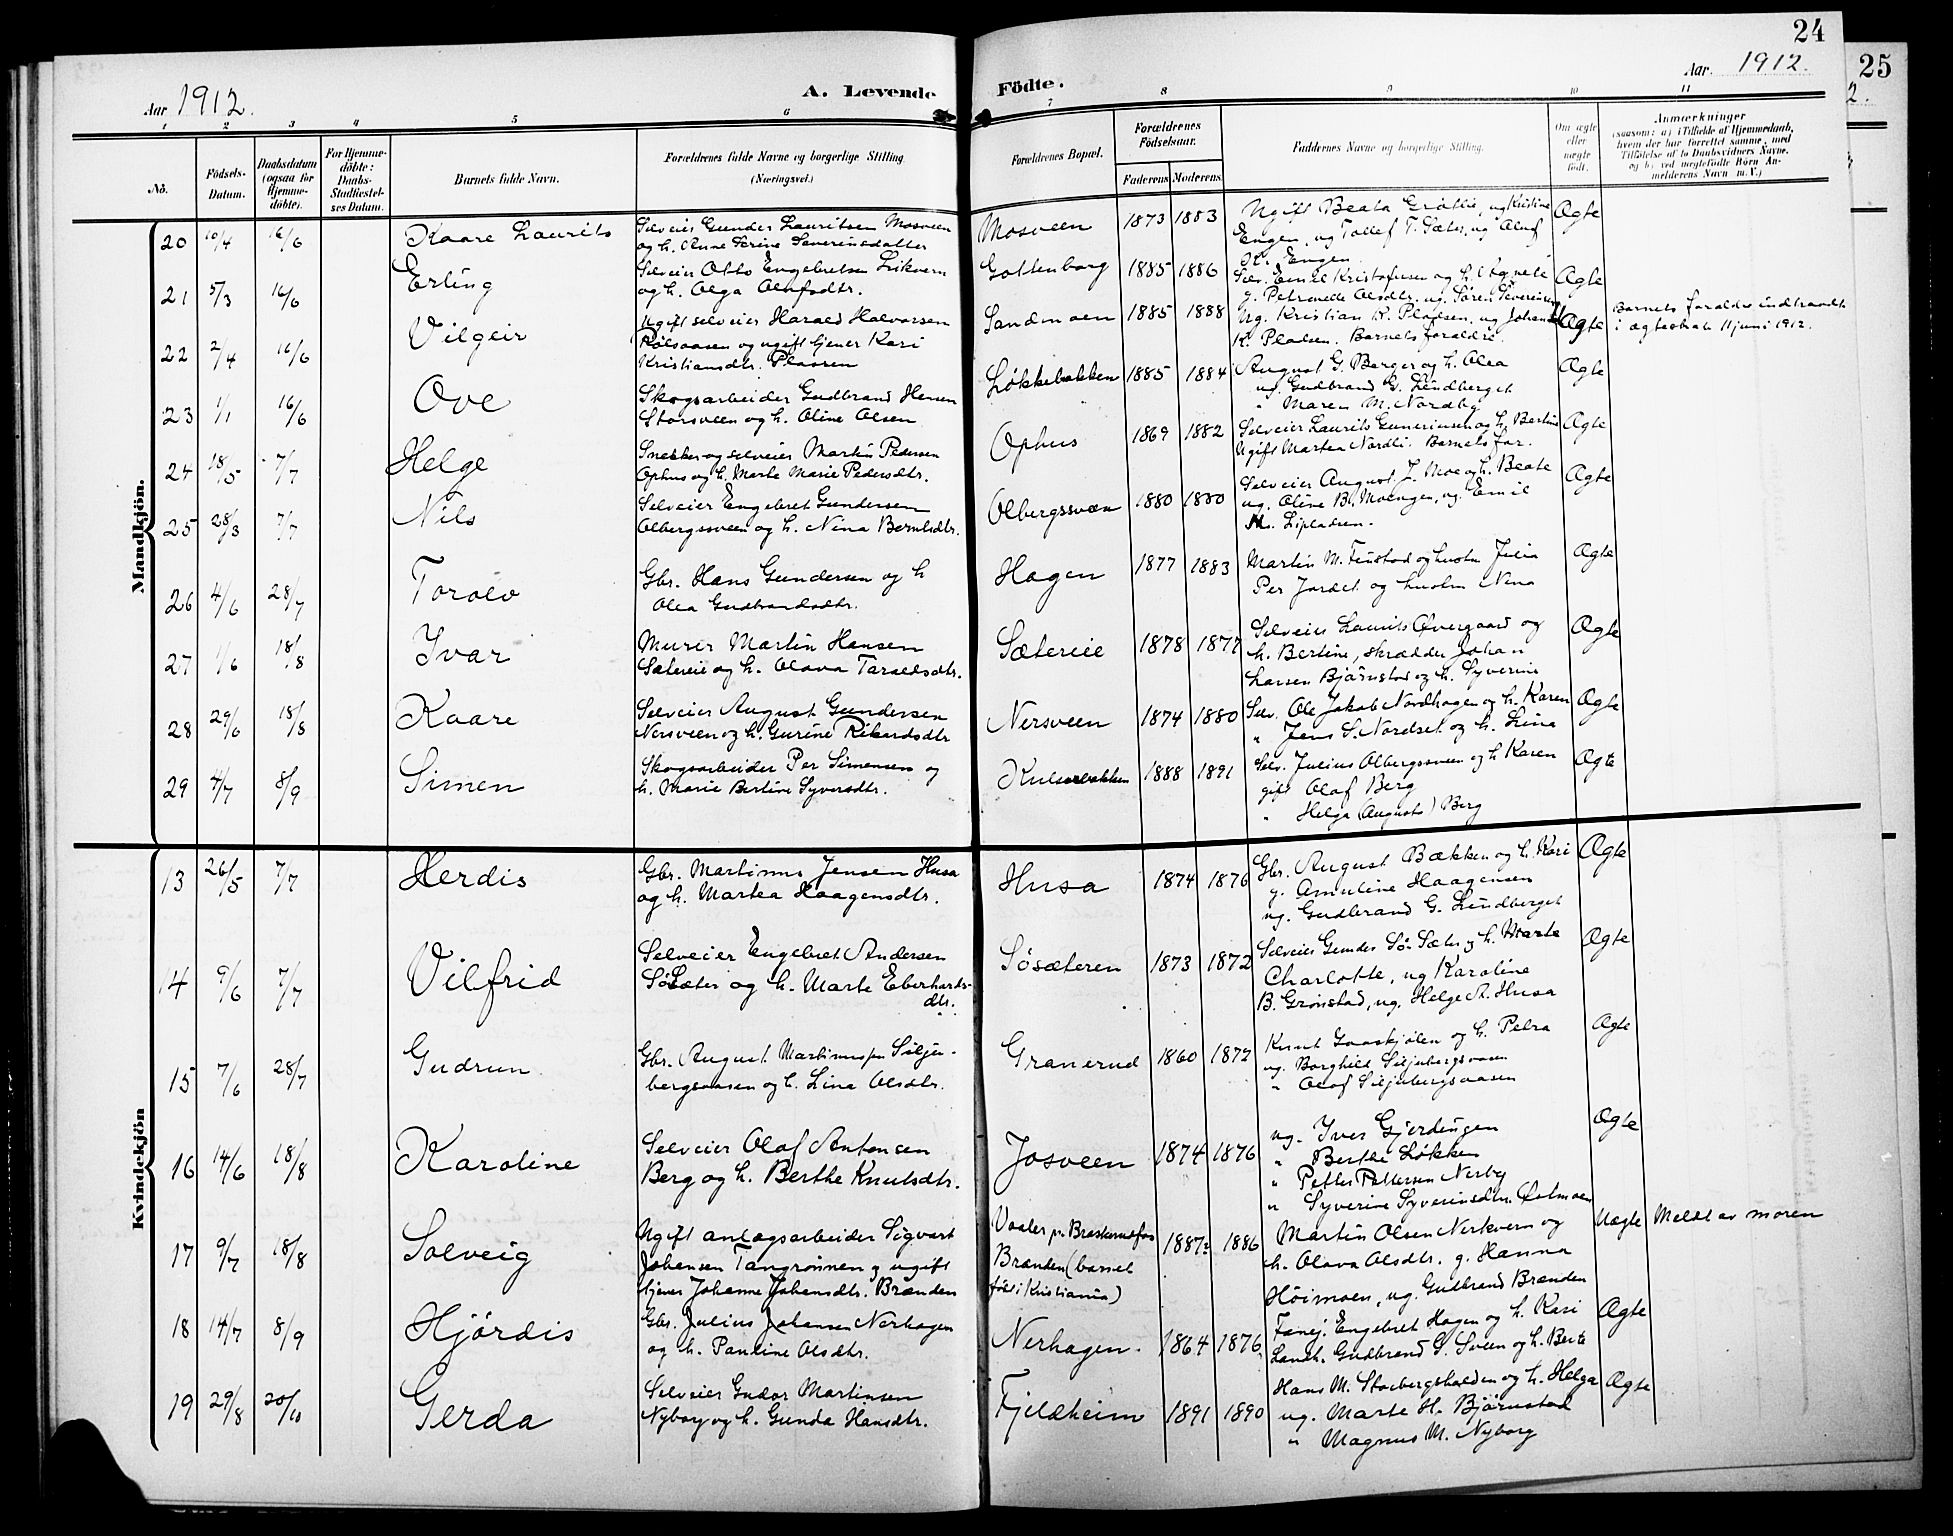 24
25
Aar 1912.
A. Levende
Födte.
Aar. 1912.
1 2 3 4 5 6 7 8 9 10 11
No.
Födsels-
Datum.
Daabsdatum
(ogsaa for
Hjemme-
döbte).
For Hjemme-
döbte:
Daabs-
Stadfæstel-
ses Datum.
Barnets fulde Navn.
Forældrenes fulde Navne og borgerlige Stilling.
(Næringsvei.)
Forældrenes Bopæl.
Forældrenes
Födselsaar.
Faderens
Moderens
Faddernes Navne og borgerlige Stilling.
Om ægte
eller
uægte
født.
Anmærkninger
(saasom: a) i Tilfælde af Hjemmedaab,
hvem der har forrettet samme, med
Tilföielse af to Daabsvidners Navne,
og b) ved uægtefödte Börn An-
melderens Navn m. V.)
Mandkjön.
20 10/4 16/6 Kaare Laurits
Selveier Gunder Lauritsen Mosveen
og h. Anne Serine Severinsdatter
Mosveen 1873 1883
Ugift Beata, ug Kristine
Engen, ug Tollef T. Sæter, ug Oluf
Engen
Ægte
21 5/3 16/6 Erling
Selveier Otto Engebretsen
og h. Olga Olufsdtr.
Gottenborg 1885 1886
Selv. Emil Kristofersen og h. Agnete
g. Petronede Olsdtr. ug. Søren Severinsen
Ægte
22 2/4 16/6 Vilgeir
Ugift selveier Harald Halvorsen
Rølsaasen og ugift tjener Kari
Kristiansdtr. Pladsen
Sandmoen 1885 1888
Ug. Kristian K. Pladsen, ug Johan
K. Pladsen. Barnets forældre.
Ægte
Barnets forældre indtraadt
i ægteskab 11 juni 1912.
23 1/1 16/6 Ove
Skogsarbeider Gudbrand Hansen
Storsveen og h. Oline Olsen
Løkkebakken 1885 1884
August G. Berger og h. Olea
ug. Gudbrand G. Lindberget
" Maren M. Nordby
Ægte
24 18/5 7/7 Helge
Snekker og selveier Martin Pedersen
Ophus og h. Marte Marie Pedersdtr.
Ophus 1869 1882
Selveier Laurits Gunerinsen og h. Bertine
Ugift Martea Nordli. Barnets far.
Ægte
25 28/3 7/7 Nils
Selveier Engebret Gundersen
Olbergssveen og h. Nina Berntsdtr.
Olbergssveen 1880 1880
Selveier August J. Moe og h. Beate
ug. Oline B. Moengen, ug. Emil
Lipladsen.
Ægte
26 4/6 28/7 Torolv
Gbr. Hans Gundersen og h
Olea Gudbrandsdtr.
Hagen 1877 1883
Martin M. Finstad og hustru Julia
Per Jordet og hustru Nina
Ægte
27 1/6 18/8 Ivar
Murer Martin Hansen
Sætereie og h. Olava Taraldsdtr.
Sætereie 1878 1877
Selveier Laurits Øvergaard og
h. Bertine, skrædder Johan
Larsen Bjørnstad og h. Syverine
Ægte
28 29/6 18/8 Kaare
Selveier August Gundersen
Nersveen og h. Gurine Rikardsdtr
Nersveen 1874 1880
Selv. Ole Jakob Nordhagen og h. Karen
" Jens S. Nordset og h. Lina
Ægte
29 4/7 8/9 Simen
Skogsarbeider Per Simensen og
h. Marie Bertine Syversdtr.
1888 1891
Selv. Julius Olbergssveen og h Karen
gift Olaf Berg
" Helga (Augusta) Berg
Ægte
Kvindekjön
13 26/5 7/7 Herdis
Gbr. Martinus Jensen Husa
og h. Martea Haagensdtr.
Husa 1874 1876
Gbr. August Bækken og h. Kari
g. Amuline Haagensen
ug. Gudbrand G. Lindberget
Ægte
14 9/6 7/7 Vilfrid
Selveier Engebret Andersen
Sø Sæter og h. Marte Eberhards-
dtr.
Søsæteren 1873 1872
Selveier Gunder Sø-Sæter og h. Marte
Charlotte, ug Karoline
B. Grønstad, ug. Helge A. Husa
Ægte
15 7/6 28/7 Gudrun
Gbr. August Martinussen Silju-
bergsaasen og h. Lina Olsdtr.
Granerud 1860 1872
Knut Gaaskjølen og h. Petra
ug. Borghild Siljubergsaasen
" Olaf Siljubergsaasen
Ægte
16 14/6 18/8 Karoline
Selveier Olaf Antonsen
Berg og h. Berthe Knutsdtr.
Josveen 1874 1876
ug. Iver Gjerdingen
" Berthe Løkken
" Petter Pettersen Nerby
" Syverine Syverinsdtr.
Ægte
17 9/7 18/8 Solveig
Ugift anlægsarbeider Sigvart
Johansen Tangrønnen og ugift
tjener Johanne Johansdtr. Brænden
Vaaler pr. Braskereidfos
Brænden (barnet
født i Kristiania)
1887 1886
Martin Olsen Nerkvern og
h. Olava Olsdtr. g. Hanna
Høimoen, ug. Gudbrand Brænden
Uægte Meldt av moren
18 14/7 8/9 Hjørdis
Gbr. Julius Johansen Nerhagen
og h. Pauline Olsdtr.
Nerhagen. 1864 1876
Fanej. Engebret Hagen og h. Kari
Landh. Gudbrand S. Sveen og h. Berte
Ægte
19 29/8 20/10 Gerda
Selveier Gudar Martinsen
Nyborg og h. Gunda Hansdtr.
Fjeldheim 1891 1890
Hans M. Storbergshalden og h. Helga
ug. Marte H. Bjørnstad
" Magnus M. Nyborg
Ægte